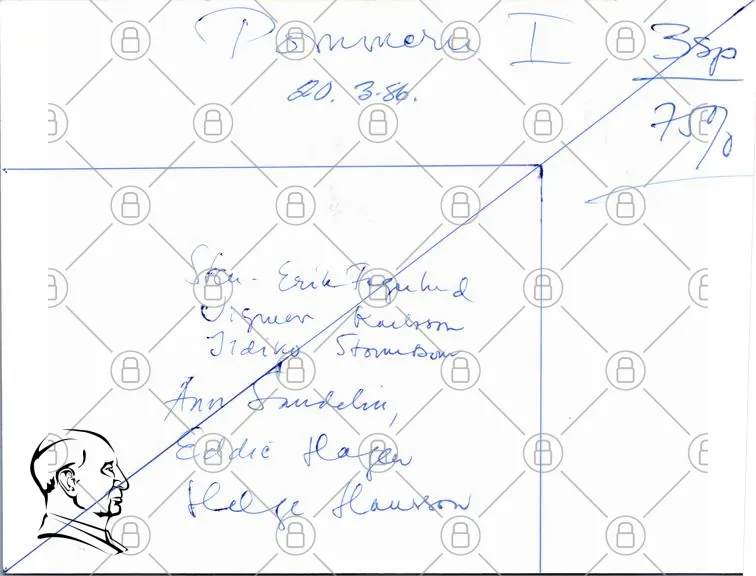 Pommern I
3sp
20. 3-86.
75%
Sten-Erik Fagerlund
Vigmar Karlsson
Ildiko Stombom
Ann Sandelin,
Eddie Hagen
Helge Hansson